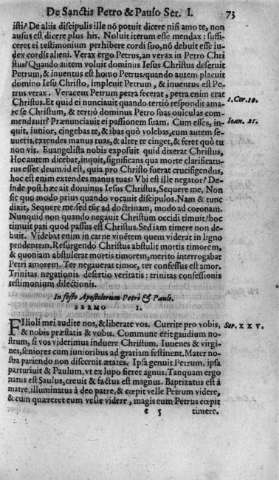 De Sanctis Petro & Paulo Ser. I. 73
isti? De aliis discipulis ille nõ potuit dicere nisi amo te, non
ausus est dicere plus his. Noluit iterum esse mendax: suffi-
ceret ei testimonium perhibere cordi suo, nõ debuit esse iu-
dex cordis alieni. Verax ergo Petrus, an verax in Petro Chri
stus? Quando autem voluit dominus Iesus Christus deseruit
Petrum, & inuentus est homo Petrus: quando autem placuit
domino Iesu Christo, impleuit Petrum, & inuentus est Pe-
trus verax. Veracem Petrum petra fecerat, petra enim erat
Christus. Et quid ei nunciauit quando tertiò respondit ama-
re se Christum, & tertiò dominus Petro suas ouiculas com-
mendauit? Prænunciauit ei passionem suam. Cum esses, in-
quit, iunior, cingebas te, & ibas quò volebas, cum autem se-
nueris, extendes manus tuas, & alter te cinget, & feret quò tu
non vis. Euangelista nobis exposuit quid diceret Christus.
Hoc autem dicebat, inquit, significans qua morte clarificatu-
rus esset deum: id est, quia pro Christo fuerat crucifigendus,
hoc est enim extendes manus tuas: Vbi est ille negator? De-
inde post hæc ait dominus Iesus Christus, Sequere me. Non
sic quo modo prius quando vocauit discipulos. Nam & tunc
dixit, Sequere me: sed tũc ad doctrinam, modo ad coronam.
Nunquid non quando negauit Christum occidi timuit? hoc
timuit pati quod passus est Christus. Sed iam timere non de-
buit. Videbat enim in carne viuentem quem viderat in ligno
pendentem. Resurgendo Christus abstulit mortis timorem,
& quoniam abstulerat mortis timorem, merito interrogabat
Petri amorem. Ter negauerat timor, ter confessus est amor.
Trinitas negationis desertio veritatis: trinitas confessionis
testimonium dilectionis.
In festo Apostolorum Petri & Pauli.
SERMO I.
Filioli mei audite nos, & liberate vos. Currite pro vobis,
& nobis præstatis & vobis. Commune est gaudium no-
strum, si vos viderimus induere Christum. Iuuenes & virgi-
nes, seniores cum junioribus ad gratiam festinent. Mater no-
stra pariendo non desiciernit ætates. Ipsa genuit Petrum, ipsa
parturiit & Paulum, vt ex lupo fieret agnus. Tanquam ergo
natus est Saulus, creuit & factus est magnus. Baptizatus est à
matre, illuminatus à deo patre, & cœpit velle Petrum videre,
& cum quæreret eum velle videre, magis eum Petrus cœpit
e 5 timere.
1. Cor. 10.
Ioan. 21.
Ser. XXV.